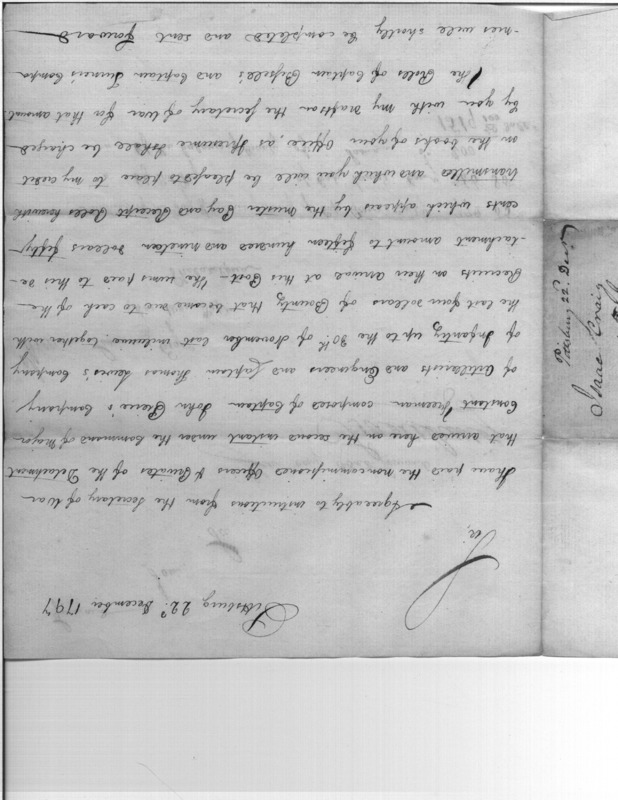 Pittsburg 22.d December 1797
Sir,
Agreeably to instructions from the Secretary of War
I have paid the noncommissioned Officers & Privates of the Detachment
that arrived here on the second instant under the Command of Major
Constant Freeman composed of Captain John Pierce's Company
of Artillerists and Engineers and Captain Thomas Lewis's Company
of Infantry up to the 30th of November last inclusive together with
the last four dollars of Bounty that became due to each of the
Recruits on their arrival at this Post - The sums paid to this De-
-tachment amount to fifteen hundred and nineteen dollars fifty
cents which appears by the Muster Pay and Receipt Rolls herewith
transmitted and which you will be pleased to place to my credit
on the books of your Office, as I presume I shall be charged
by you with my drafts on the Secretary of War for that amount
The Rolls of Captain Bissell's and Captain Turner's Compa-
-nies will shortly be completed and sent forward
Pittsburg 22.d Decr
Isaac Craig